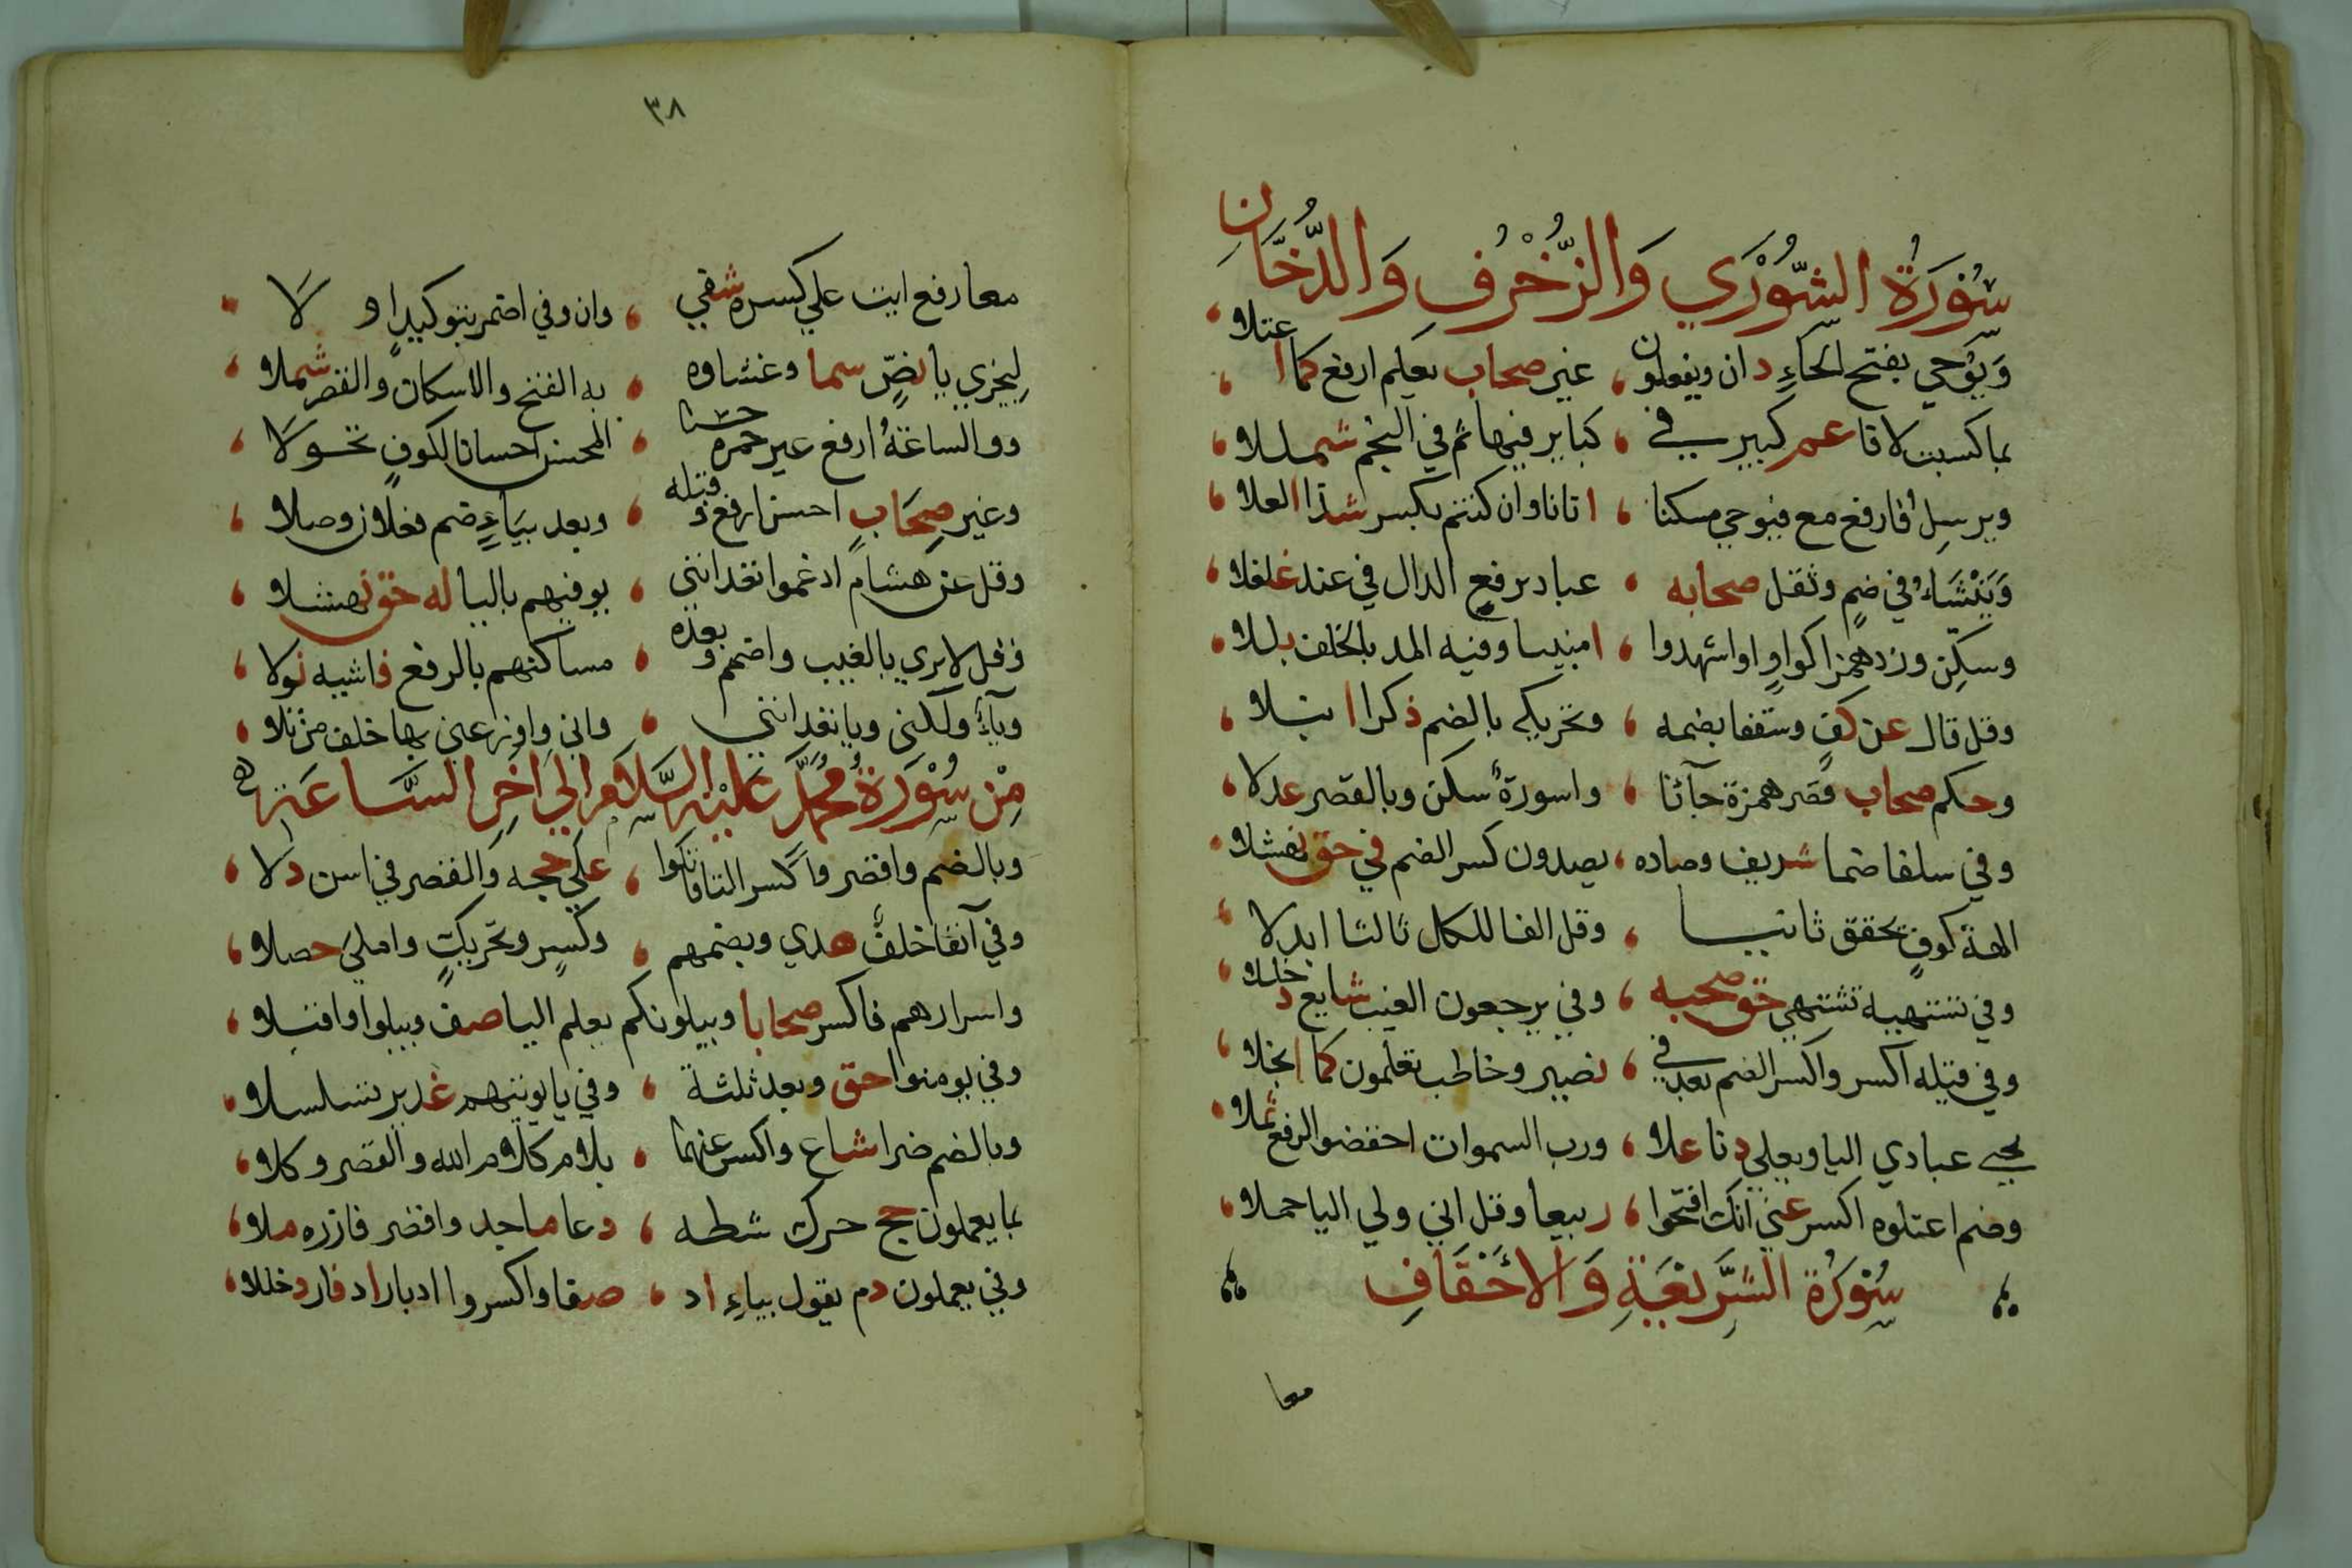 سُوْرَةُ الشُّوْرَي وَالزُّخْرُفِ وَالدُّخَّانِ
وَيُوْحي بفتح الحَاءِ دان ويفعلون ، غير صحاب يعلم ارفع كما اعتلا ،
بما كسبت لا فا عم كبير في ، كباير فيها ثم في النجم شمللا ،
ويرسِلُ فارفع مع فيوحي مسكنا ، اتانا وان كنتم بكسر شذا العلا ،
وَيَنْشَاءُ في ضمٍ وثقل صحابه ، عباد برفع الدال في عند غلغلا ،
وسكّن وزد همزا كواوٍ اواشهدوا ، امينا وفيه المد بالخلف بللا ،
وقل قال عن كفٍ وسقفا بضمه ، وتحريكه بالضم ذكرا انبلا ،
وحكم صحاب قصر همزة جآئنا ، واسورةٌ سكن وبالقصر عدلا ،
وفي سلفا ضما شريف وصاده ، يصدون كسر الضم في حق نهشلا ،
الهة كوفٍ يحقق ثانيا ، وقل الفا للكل ثالثا ابدلا ،
وفي تشتهيه تشتهي حق صحبه ، وفي يرجعون الغيب شايع دخللا ،
وفي قيله اكسر واكسر الضم بعد في ، نصير وخاطب تعلمون كما انجلا ،
بحتي عبادي اليا ويعلي دنا علا ، ورب السموات اخفضوا الرفع ثملا ،
وضم اعتلوه اكسر عني انك افتحوا ، ربيعا وقل اني ولي اليا حملا ،
سُوْرَةُ الشَّرِيْعَةِ وَالاَحْقَافِ
معا
٣٨
معا رفع ايت علي كسره شفي ، وان وفي اضمر بتوكيدٍ او لَا ،
لِيجزي يا نصٍّ سما وغشاوه ، به الفتح والاسكان والقصر شملا ،
ووالساعةُ ارفع غير حمزة حسنا ، المحسن احسانا لكوفٍ تحولَا ،
وغير صِحَابٍ احسن ارفع وقبله ، وبعد بيَاءٍ ضم فعلان وصلا ،
وقل عن هشامٍ ادغموا تعدانني ، يوفيهم باليا له حق نهشلا ،
وقل لا يري بالغيب واضمم وبعده ، مساكنهم بالرفع فاشيه نولا ،
وياءُ ولكني ويا تعدانني ، واني واوزعني بها خلف من تلا ،
مِنْ سُوْرَةِ مُحَمَّدٍ عَلَيْهِ السَّلَامُ اِلَي اَخِرِ السَّاعَةِ
وبالضم واقصر واكسر التا قاتلوا ، علي حجه والقصر في اسن دلا ،
وفي آنفا خلفٌ هدي وبضمهم ، وكسرٍ وتحريكٍ وامليَ حصلا ،
واسرارهم فاكسر صحابا ويبلونكم يعلم اليا صف ويبلوا واقبلا ،
وفي يومنوا حق وبعد ثلثة ، وفي يا يوتيهم غدير تسلسلا ،
وبالضم ضرا شاع واكسر عنهما ، بلام كلام الله والقصر وكلا ،
بما يعملون حج حرك شطه ، دعا ماجد واقصر فازره ملا ،
وفي يعملون دم يقول بياءِ اد ، صفا واكسروا ادبار اد فاز دخللا ،